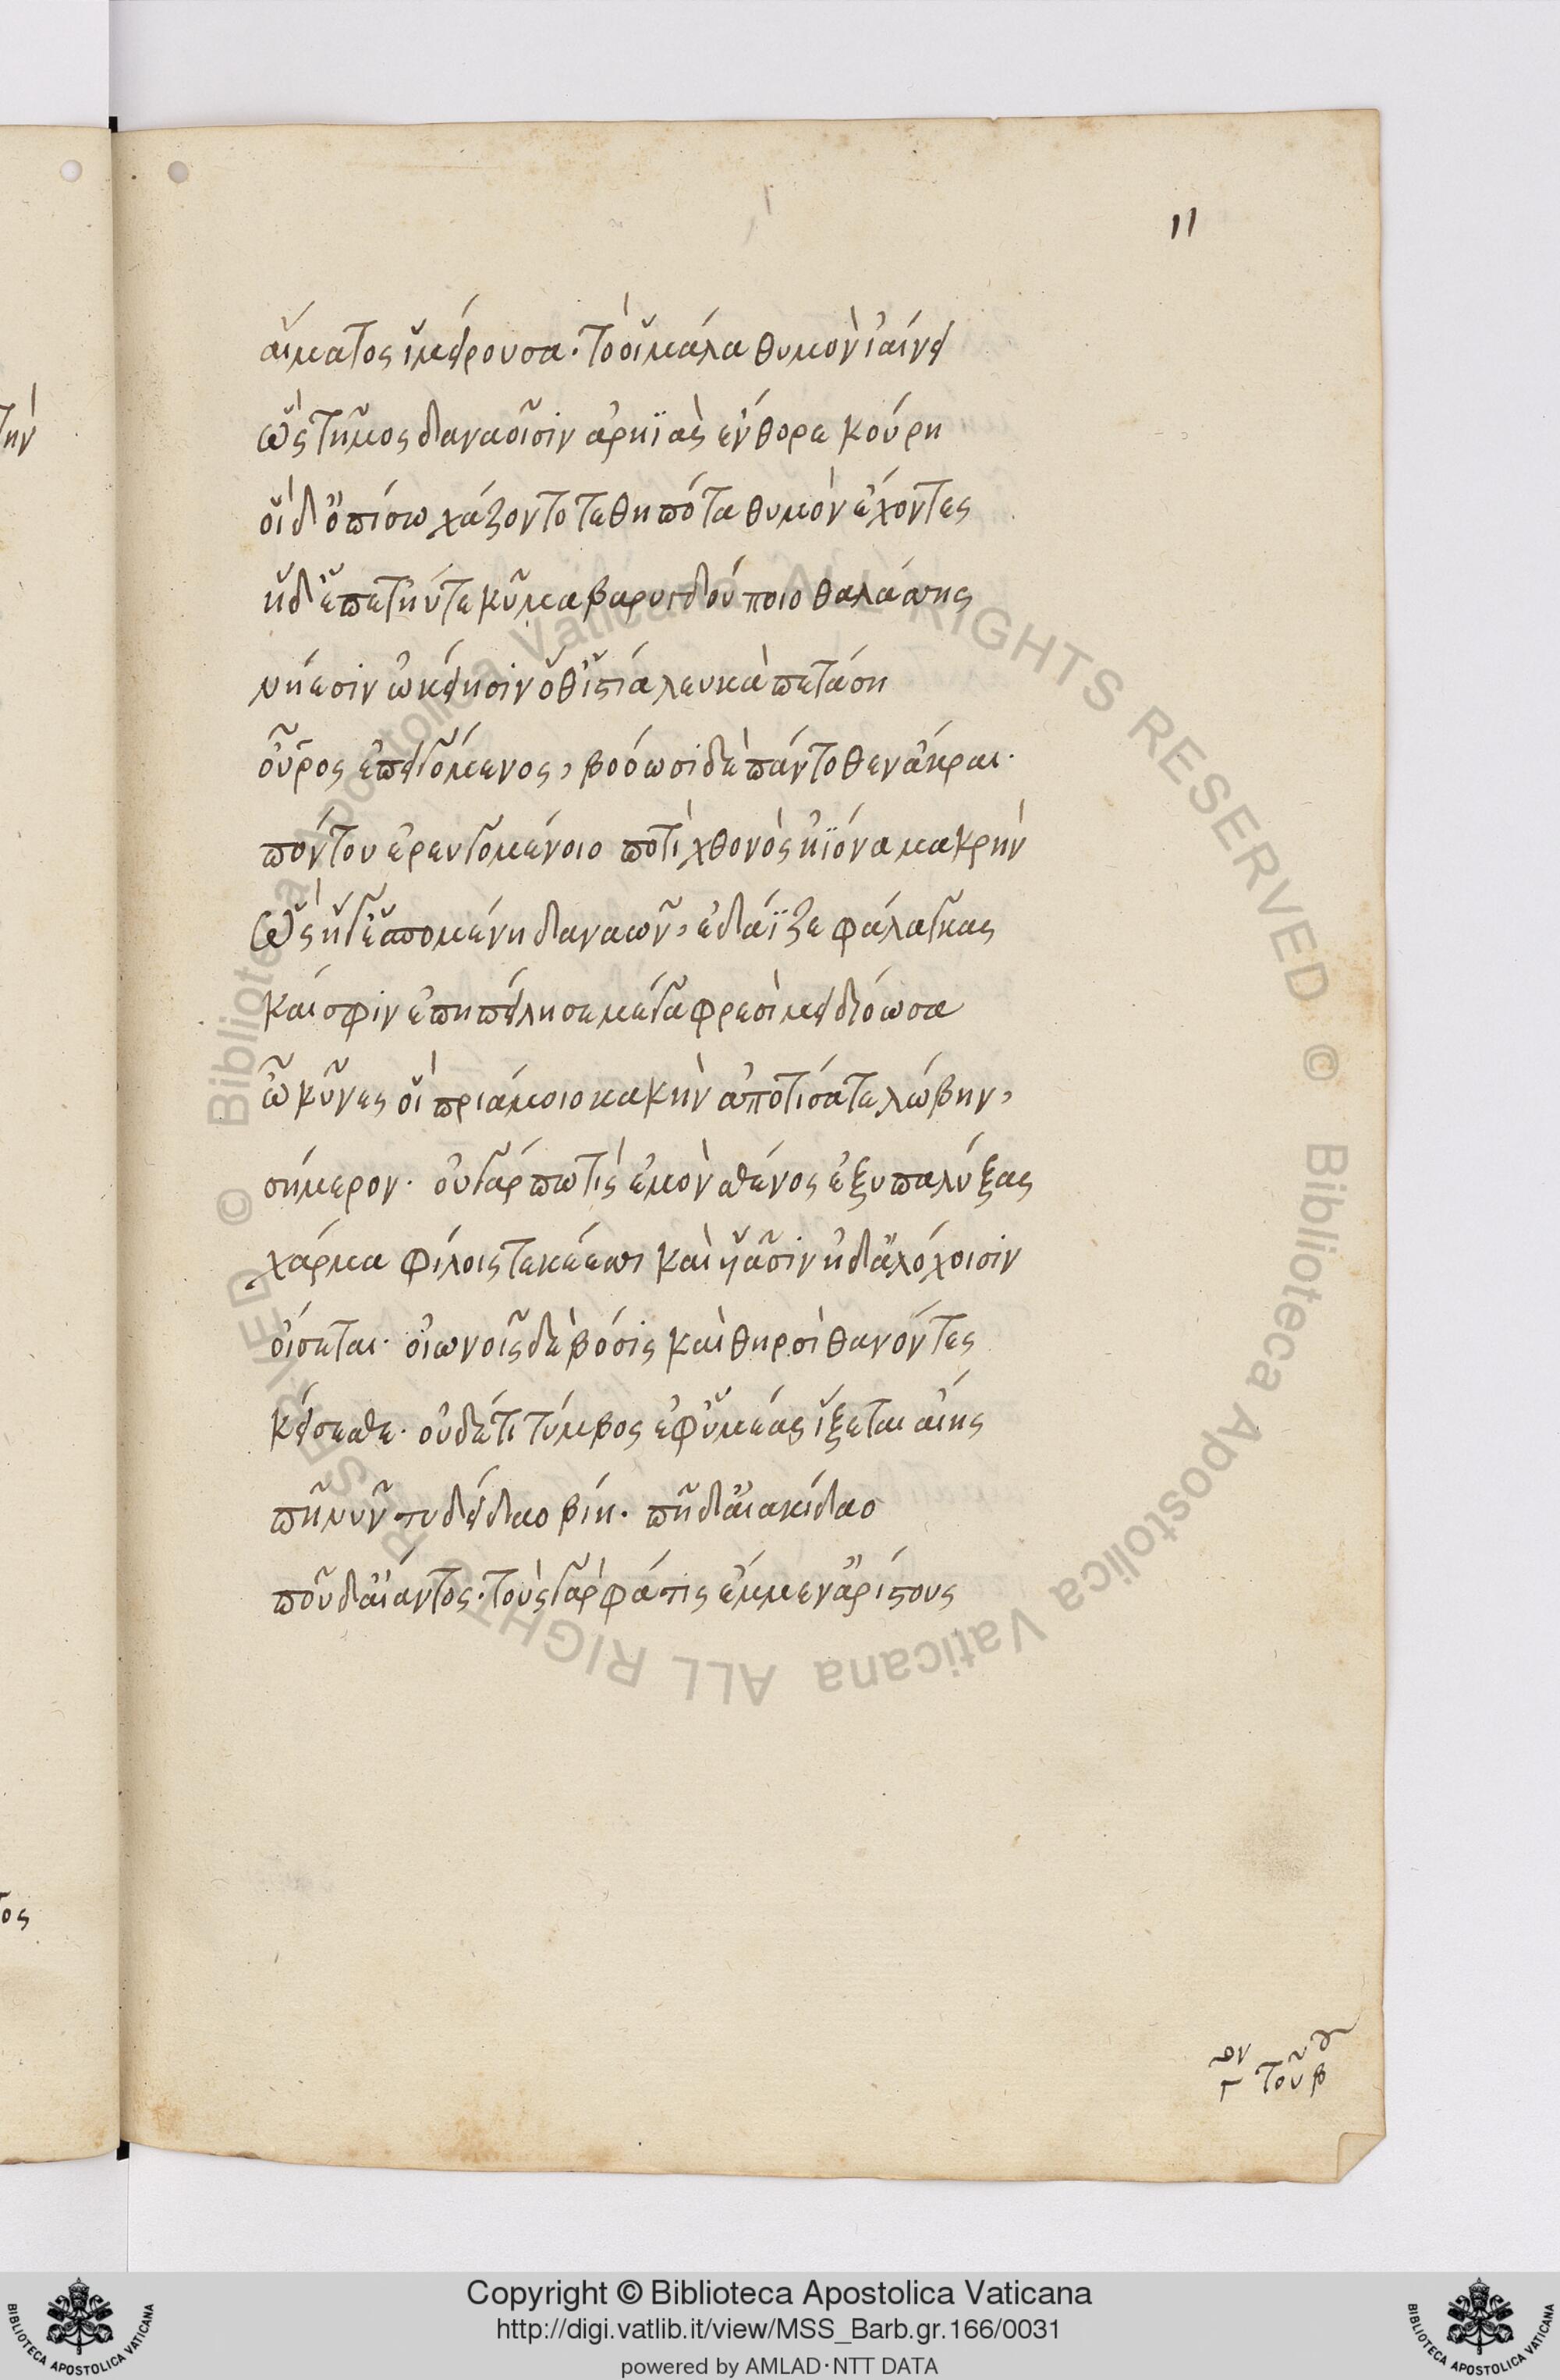 11
αἵματος ἱμείρουσα· τὸ οἷ μάλα θυμὸν ἰαίνει
ὣς τῆμος δαναοῖσιν ἀρηϊὰς ἔνθορε κούρη
οἱ δ' ὀπίσω χάζοντο τεθηπότα θυμὸν ἔχοντες
ἡ δ' ἕπετ' ἠύτε κῦμα βαρυγδούποιο θαλάσσης
νήεσιν ὠκείῃσιν ὅθ' ἱστία λευκὰ πετάσῃ
οὖρος ἐπειγόμενος, βοόωσι δὲ πάντοθεν ἄκραι·
πόντου ἐρευγομένοιο ποτὶ χθονὸς ἠϊόνα μακρήν
ὣς ἥ γ' ἑσπομένη δαναῶν, ἐδάϊζε φάλαγγας
καί σφιν ἐπηπείλησε μέγα φρεσὶ μειδιόωσα
ὦ κύνες οἳ πριάμοιο κακὴν ἀποτίσατε λώβην,
σήμερον· οὐ γάρ πώ τις ἐμὸν σθένος ἐξυπαλύξας
χάρμα φίλοις τεκέεσσι καὶ υἱάσιν ἠδ' ἀλόχοισιν
οἴσεται· οἰωνοῖς δὲ βόσις καὶ θηρσὶ θανόντες
κείσεσθε· οὐδέ τι τύμβος ἐφ' ὑμέας ἵξεται αἴης
πῆ νῦν τυδείδαο βίη· πῆ δ' αἰακίδαο
ποῦ δ' αἴαντος· τοὺς γὰρ φάτις ἔμμεν ἀρίστους
τὴν
τος
τοῦ β
Copyright © Biblioteca Apostolica Vaticana
http://digi.vatlib.it/view/MSS_Barb.gr.166/0031
powered by AMLAD·NTT DATA
BIBLIOTECA APOSTOLICA VATICANA
BIBLIOTECA APOSTOLICA VATICANA
© Biblioteca Apostolica Vaticana ALL RIGHTS RESERVED © Biblioteca Apostolica Vaticana ALL RIGHTS RESERVED